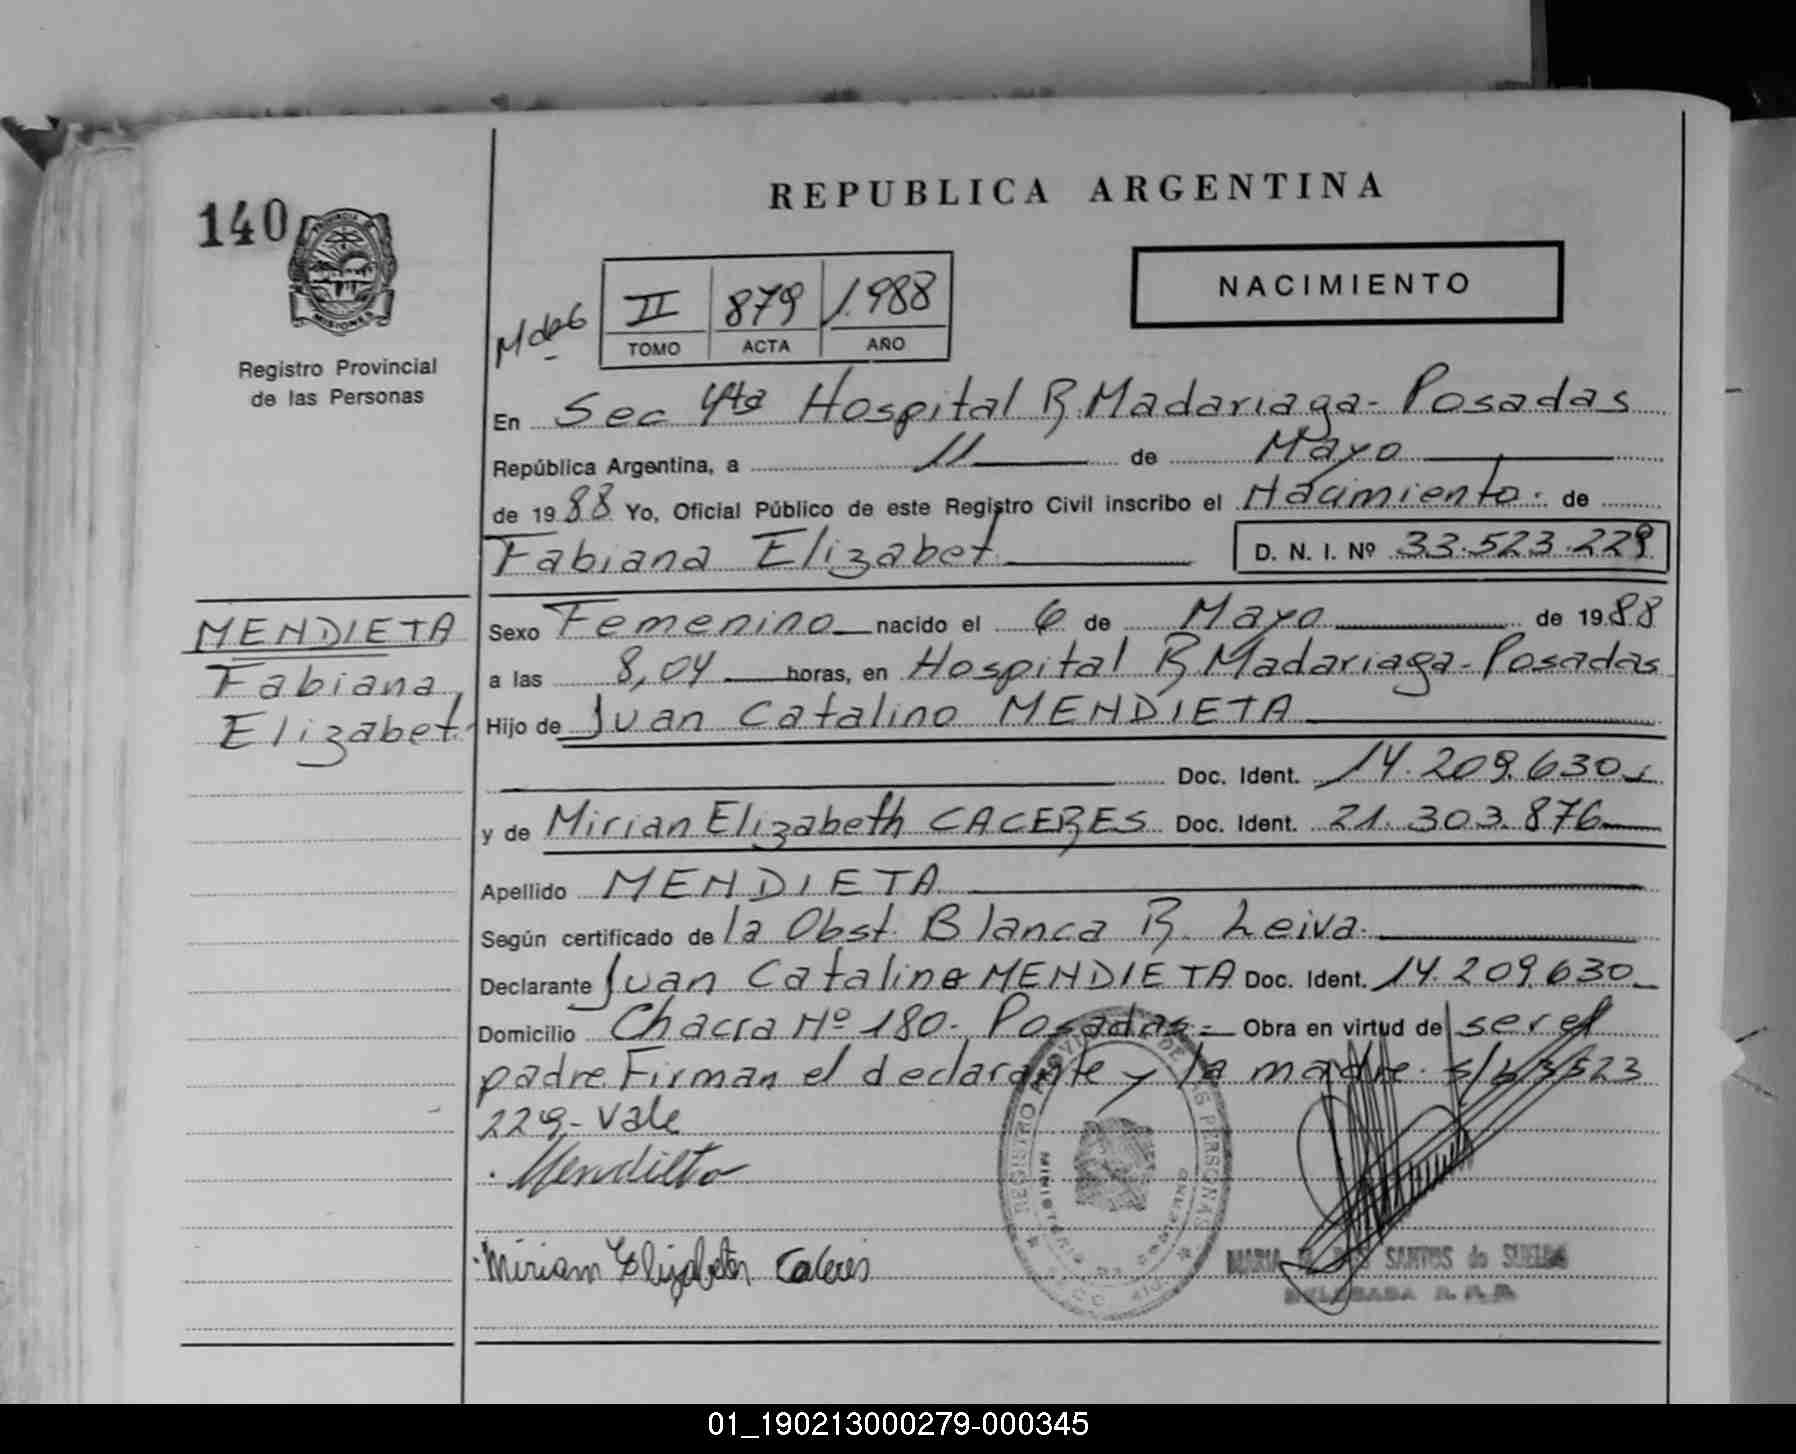 REPUBLICA ARGENTINA
140
PROVINCIA DE
MISIONES
Registro Provincial
de las Personas
NACIMIENTO
II 879 1.988
TOMO ACTA AÑO
En Sec 4ta Hospital R. Madariaga - Posadas
República Argentina, a 11 de Mayo
de 1988 Yo, Oficial Público de este Registro Civil inscribo el Nacimiento. de
Fabiana Elizabet D. N. I. Nº 33.523.229
MENDIETA
Fabiana,
Elizabet
Sexo Femenino nacido el 6 de Mayo de 1988
a las 8,04 horas, en Hospital R Madariaga - Posadas
Hijo de Juan Catalino MENDIETA
Doc. Ident. 14.209.630
y de Mirian Elizabeth CACERES Doc. Ident. 21.303.876
Apellido MENDIETA
Según certificado de la Obst. Blanca R. Leiva.
Declarante Juan Catalino MENDIETA Doc. Ident. 14.209.630
Domicilio Chacra Nº 180. Posadas.= Obra en virtud de ser el
padre. Firman el declarante y la madre. s/b/3/523
229.- vale
Mendieta
Miriam Elizabeth Caceres
REGISTRO PROVINCIAL DE LAS PERSONAS
MINISTERIO DE GOBIERNO
MARIA DOS SANTOS de SUELDO
DELEGADA R. P. P.
01_190213000279-000345